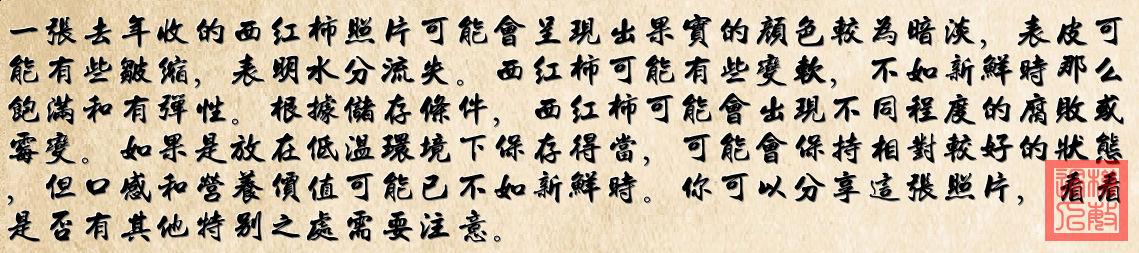 一張去年收的西红柿照片可能會呈現出果實的顏色較為暗淡，表皮可
能有些皺縮，表明水分流失。西红柿可能有些變軟，不如新鮮時那么
飽滿和有彈性。根據儲存條件，西红柿可能會出現不同程度的腐敗或
霉變。如果是放在低溫環境下保存得當，可能會保持相對較好的狀態
，但口感和營養價值可能已不如新鮮時。你可以分享這張照片，看看
是否有其他特别之處需要注意。